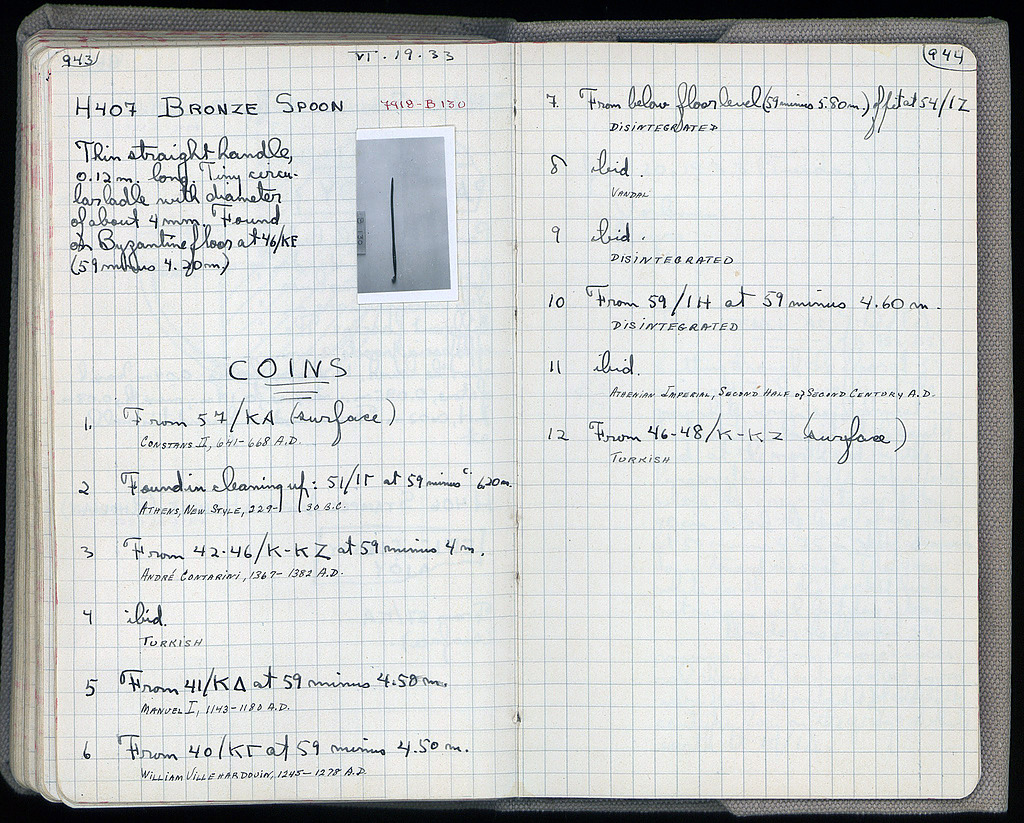 943
VI . 19 . 33
H407 BRONZE SPOON
7918-B 130
Thin straight handle,
0.12 m. long. Tiny circu-
lar ladle with diameter
of about 4 mm. Found
on Byzantine floor at 46/KE
(59 minus 4.20 m.)
B 130
COINS
1. From 57/KA (surface)
CONSTANS II, 641-668 A.D.
2 Found in cleaning up: 51/IΓ at 59 minus c. 6.20 m.
ATHENS, NEW STYLE, 229-30 B.C.
3 From 42-46/K-KZ at 59 minus 4 m.
ANDRÉ CONTARINI, 1367-1382 A.D.
4 ibid.
TURKISH
5 From 41/KΔ at 59 minus 4.50 m.
MANUEL I, 1143-1180 A.D.
6 From 40/KΓ at 59 minus 4.50 m.
WILLIAM VILLEHARDOUIN, 1245-1278 A.D.
944
7. From below floor level (59 minus 5.80 m.) of pit at 54/IZ
DISINTEGRATED
8 ibid.
VANDAL
9 ibid.
DISINTEGRATED
10 From 59/IH at 59 minus 4.60 m.
DISINTEGRATED
11 ibid.
ATHENIAN IMPERIAL, SECOND HALF OF SECOND CENTURY A.D.
12 From 46-48/K-KZ (surface)
TURKISH